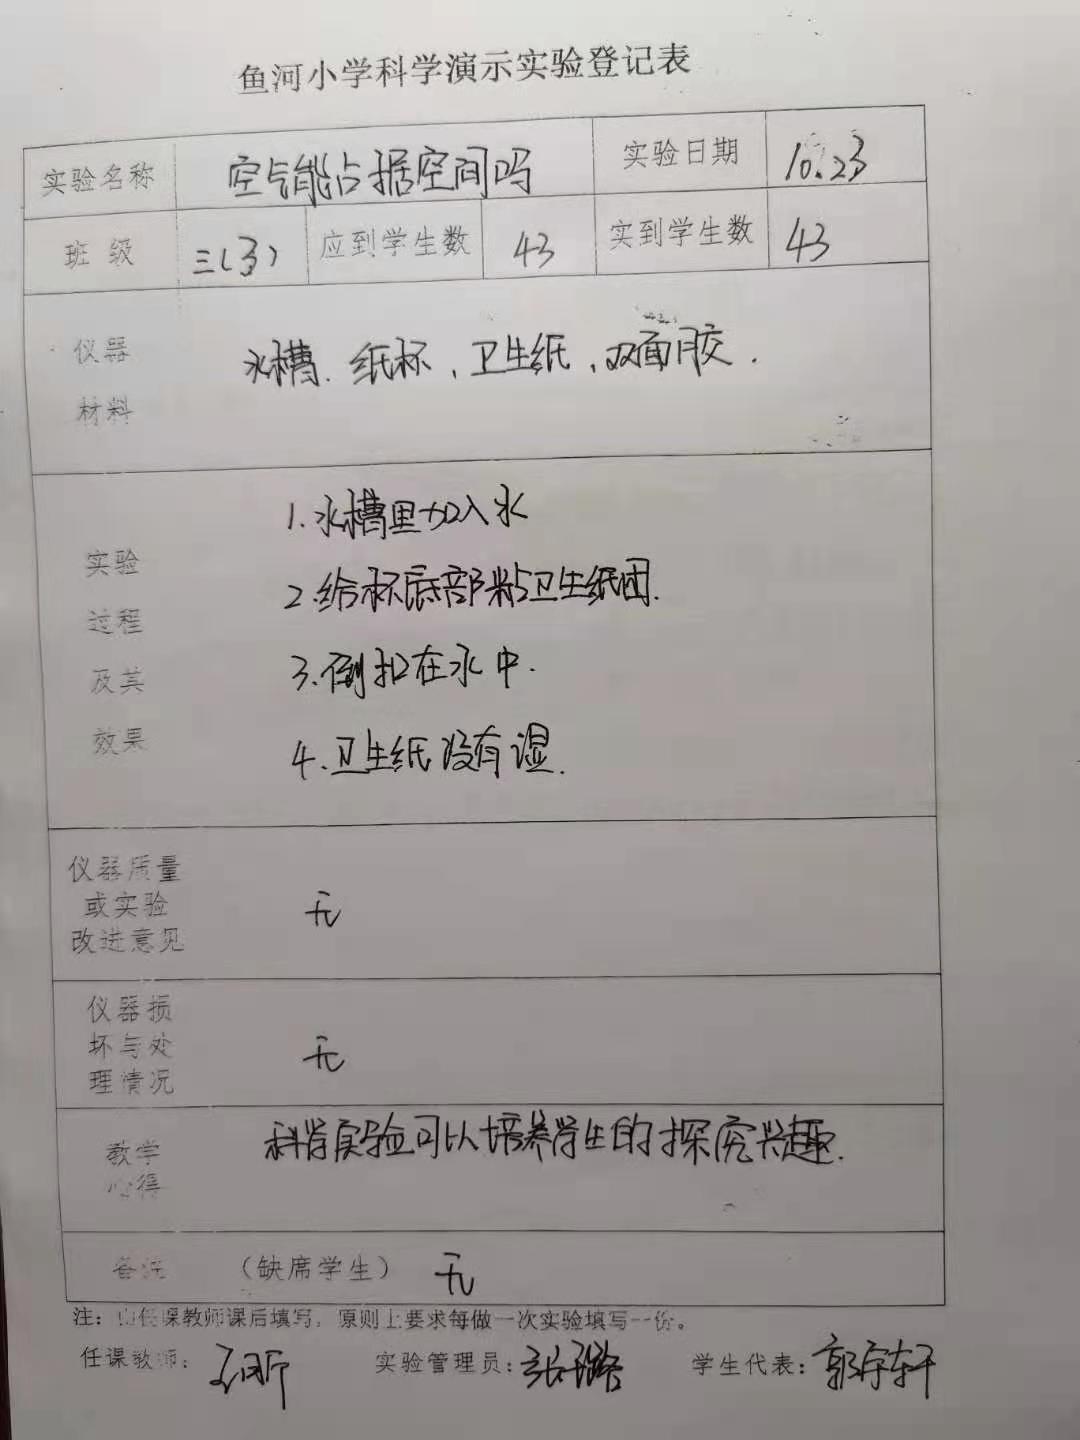 鱼河小学科学演示实验登记表
实验名称 空气能占据空间吗 实验日期 10.23
班 级 三(3) 应到学生数 43 实到学生数 43
仪器
材料
水槽、纸杯、卫生纸、双面胶.
实验
过程
及其
效果
1.水槽里加入水
2.给杯底部粘卫生纸团.
3.倒扣在水中.
4.卫生纸没有湿.
仪器质量
或实验
改进意见
无
仪器损
坏与处
理情况
无
教学
心得
科学实验可以培养学生的探究兴趣.
备注 (缺席学生) 无
注：由任课教师课后填写，原则上要求每做一次实验填写一份。
任课教师： 实验管理员： 学生代表：郭宇轩